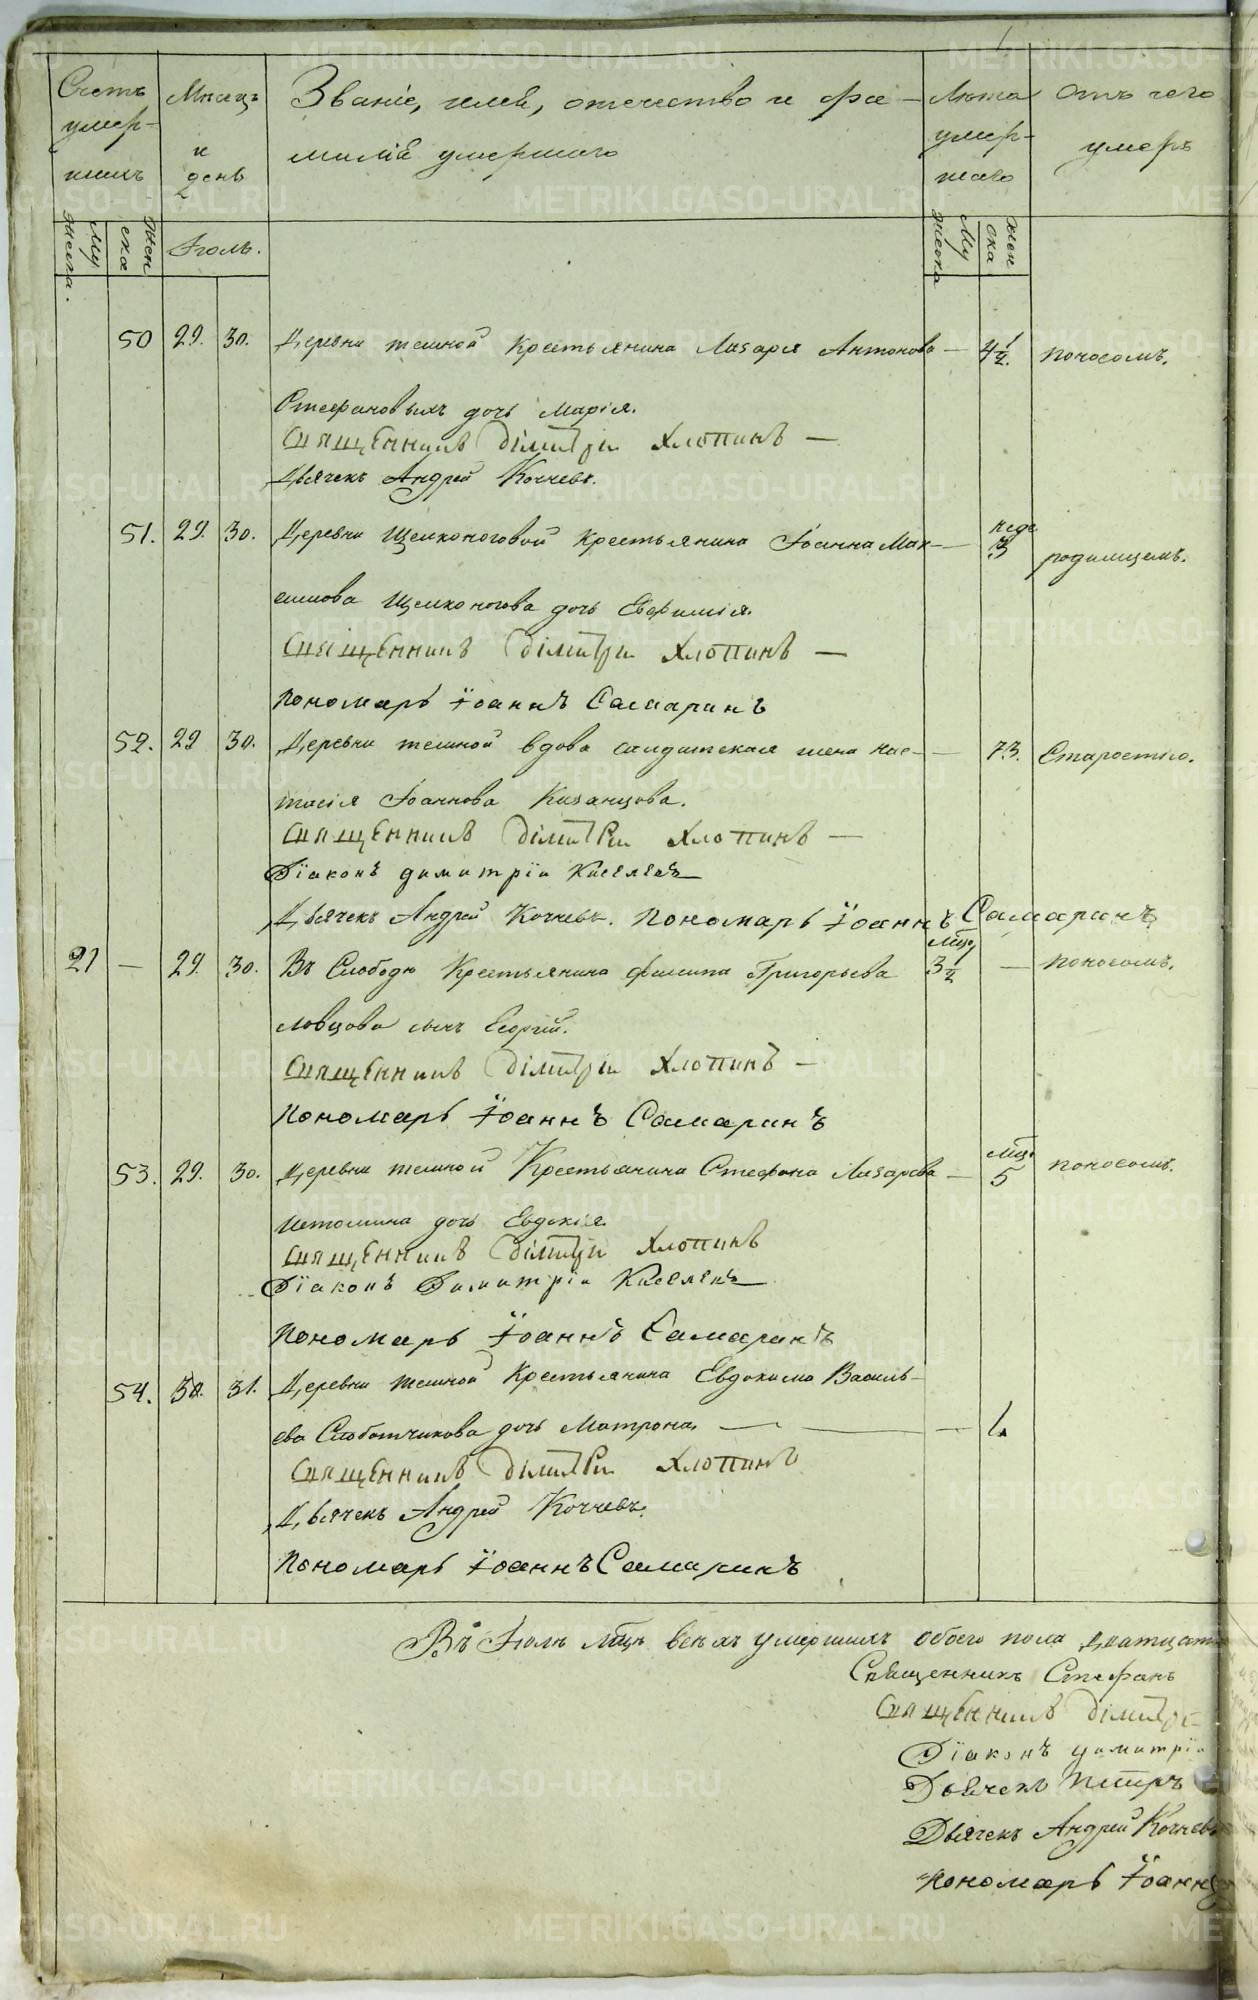 Счетъ умер- шихъ
Мѣсяцъ и день
Званіе, имя, отечество и фа-
милія умершаго
Лѣта умер- шаго
Отъ чего умеръ
Му жеска.
Жен ска
Іюль.
Му жеска
жен ска
50 29. 30. Деревни темной Крестьянина Лазаря Антонова — 4 1/2. поносомъ.
Стефановыхъ дочь Марія.
Священникъ Дімитри Хлопинъ —
Дьячекъ Андрей Кочневъ.
51. 29. 30. Деревни Щелконоговой Крестьянина Іоанна Мак- — неде 3 родимцемъ.
симова Щелконогова дочь Евфимія.
Священникъ Дімитри Хлопинъ —
Пономарь Іоаннъ Самаринъ
52. 29 30. Деревни темной вдова салдатская жена Нас- — 73. Старостію.
тасія Іоаннова Казанцова.
Священникъ Дімитри Хлопинъ —
Діаконъ Димитріи Киселевъ
Дьячекъ Андрей Кочневъ. Пономарь Іоаннъ Самаринъ
21 — 29. 30. Въ Слободѣ Крестьянина Филипа Григорьева мцо 3 1/2 — поносомъ.
ловцова сынъ Георгій.
Священникъ Дімитри Хлопинъ —
Пономарь Іоаннъ Самаринъ
53. 29. 30. Деревни темной Крестьянина Стефана Лазарева — мцо 5 поносомъ.
Истомина дочь Евдокія.
Священникъ Дімитри Хлопинъ
Діаконъ Димитріи Киселевъ
Пономарь Іоаннъ Самаринъ
54. 30. 31. Деревни темной Крестьянина Евдокима Василь-
ева Слоботчикова дочь Матрона. — — — 1.
Священникъ Дімитри Хлопинъ
Дьячекъ Андрей Кочневъ.
Пономарь Іоаннъ Самаринъ
Въ Іюлѣ мцѣ всѣхъ умершихъ обоего пола дватцать
Священникъ Стефанъ
Священникъ Дімитрі
Діаконъ Димитріи
Дьячекъ Петръ
Дьячекъ Андрей Кочневъ
Пономарь Іоаннъ
METRIKI.GASO-URAL.RU